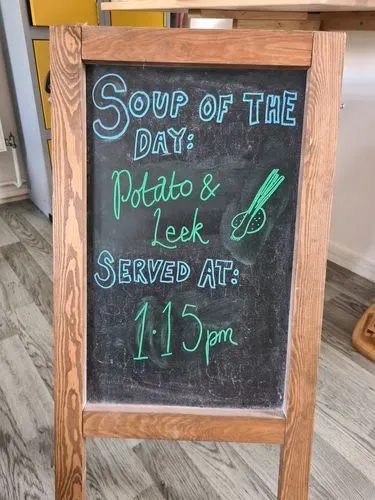 SOUP OF THE
DAY:
Potato &
Leek
SERVED AT:
1.15pm